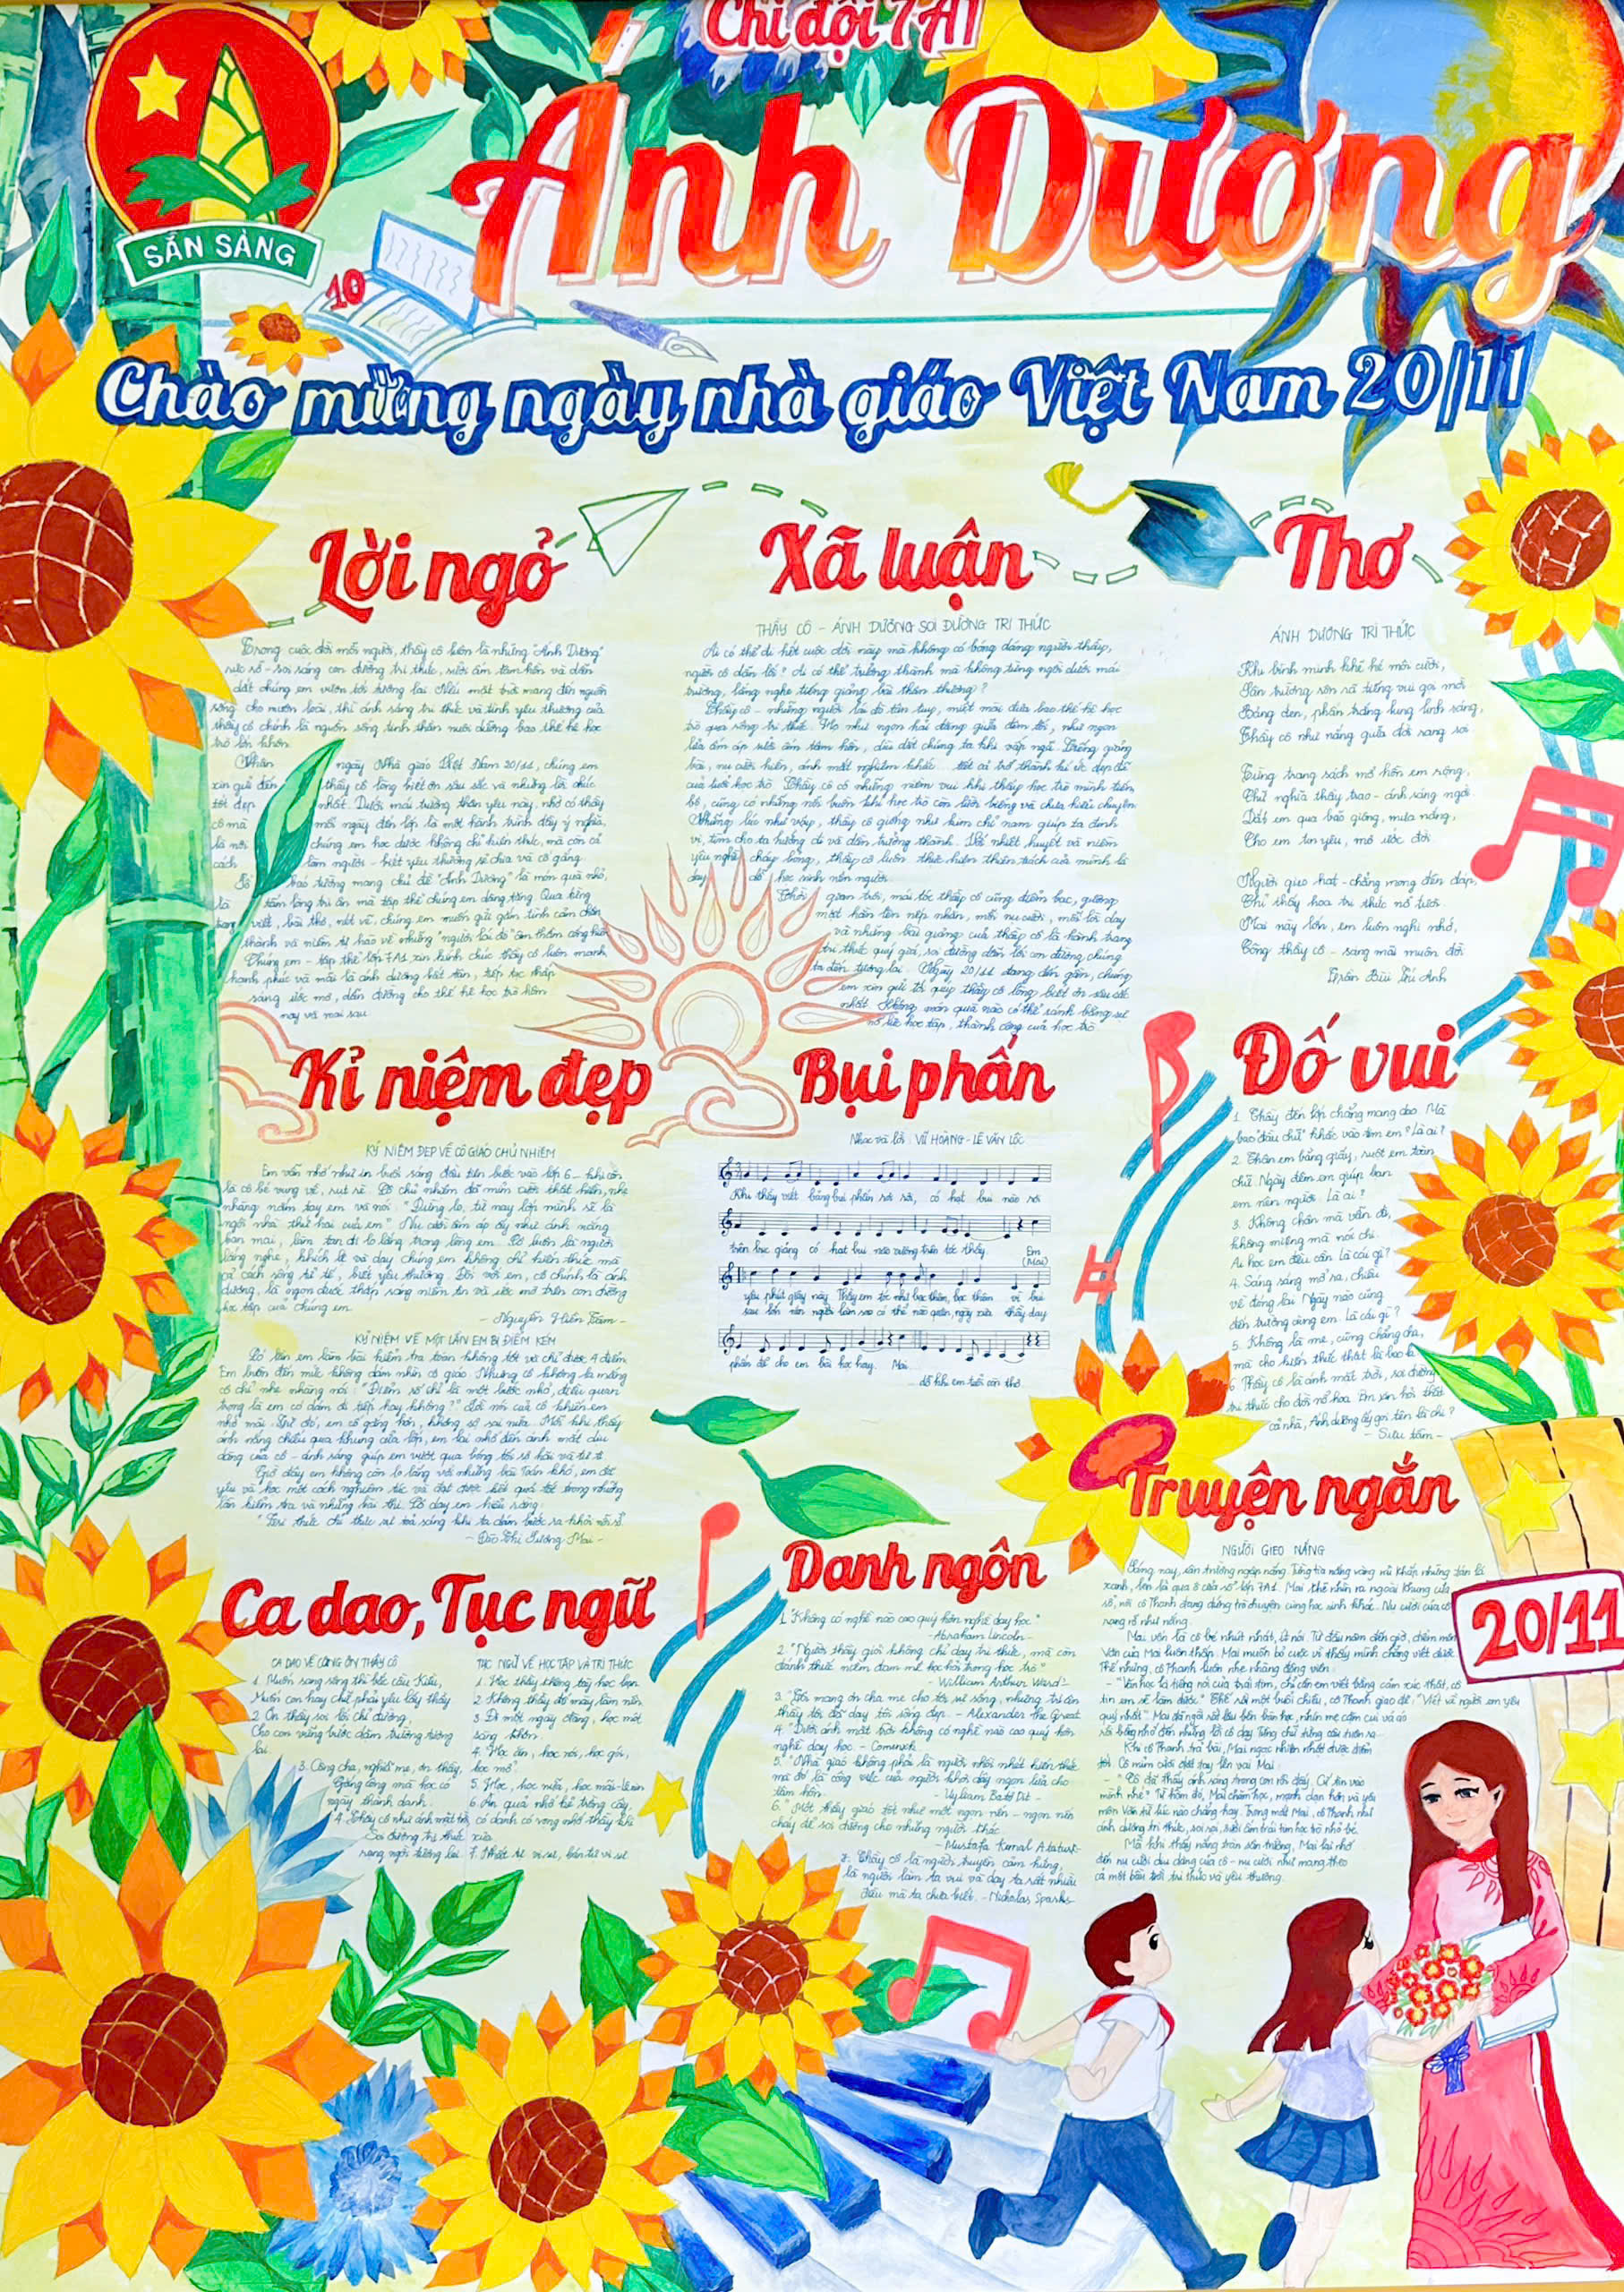 Chi đội 7A1
Ánh Dương
SẴN SÀNG
10
Chào mừng ngày nhà giáo Việt Nam 20/11
Lời ngỏ
Trong cuộc đời mỗi người, thầy cô luôn là những "Ánh Dương"
rực rỡ - soi sáng con đường tri thức, sưởi ấm tâm hồn và dẫn
dắt chúng em vươn tới tương lai. Nếu mặt trời mang đến nguồn
sống cho muôn loài, thì ánh sáng tri thức và tình yêu thương của
thầy cô chính là nguồn sống tinh thần nuôi dưỡng bao thế hệ học
trò lớn khôn.
Nhân ngày Nhà giáo Việt Nam 20/11, chúng em
xin gửi đến thầy cô lòng biết ơn sâu sắc và những lời chúc
tốt đẹp nhất. Dưới mái trường thân yêu này, nhờ có thầy
cô mà mỗi ngày đến lớp là một hành trình đầy ý nghĩa
là nơi chúng em học được không chỉ kiến thức, mà còn cả
cách làm người - biết yêu thương sẻ chia và cố gắng.
Tờ báo tường mang chủ đề "Ánh Dương" là món quà nhỏ,
là tấm lòng tri ân mà tập thể chúng em dâng tặng. Qua từng
trang viết, bài thơ, nét vẽ, chúng em muốn gửi gắm tình cảm chân
thành và niềm tự hào về những "người lái đò" âm thầm cống hiến
Chúng em - tập thể lớp 7A1 xin kính chúc thầy cô luôn mạnh,
hạnh phúc và mãi là ánh dương bất tận, tiếp tục thắp
sáng ước mơ, dẫn đường cho thế hệ học trò hôm
nay và mai sau.
Xã luận
THẦY CÔ - ÁNH DƯƠNG SOI ĐƯỜNG TRI THỨC
Ai có thể đi hết cuộc đời này mà không có bóng dáng người thầy,
người cô dẫn lối? Ai có thể trưởng thành mà không từng ngồi dưới mái
trường, lắng nghe tiếng giảng bài thân thương?
Thầy cô - những người lái đò tận tụy, miệt mài đưa bao thế hệ học
trò qua sông tri thức. Họ như ngọn hải đăng giữa đêm tối, như ngọn
lửa ấm áp sưởi ấm tâm hồn, dìu dắt chúng ta khi vấp ngã. Tiếng giảng
bài, nụ cười hiền, ánh mắt nghiêm khắc... tất cả trở thành kí ức đẹp đẽ
của tuổi học trò. Thầy cô có những niềm vui khi thấy học trò mình tiến
bộ, cũng có những nỗi buồn khi học trò còn lười biếng và chưa hiểu chuyện.
Những lúc như vậy, thầy cô giống như kim chỉ nam giúp ta định
vị, tìm cho ta hướng đi và dần trưởng thành. Với nhiệt huyết và niềm
yêu nghề cháy bỏng, thầy cô luôn thực hiện thiên trách của mình là
dạy dỗ học sinh nên người.
Thời gian trôi, mái tóc thầy cô cũng điểm bạc, gương
mặt hằn lên nếp nhăn, mỗi nụ cười, mỗi lời dạy
và những bài giảng của thầy cô là hành trang
tri thức quý giá, soi đường dẫn lối con đường chúng
ta đến tương lai. Ngày 20/11 đang đến gần, chúng
em xin gửi tới quý thầy cô lòng biết ơn sâu sắc
nhất. Không món quà nào có thể sánh bằng sự
nỗ lực học tập, thành công của học trò
Thơ
ÁNH DƯƠNG TRI THỨC
Khi bình minh khẽ hé môi cười,
Sân trường rộn rã tiếng vui gọi mời
Bảng đen, phấn trắng lung linh sáng,
Thầy cô như nắng giữa đời sang soi.
Từng trang sách mở hồn em rộng,
Chữ nghĩa thầy trao - ánh sáng ngời.
Dắt em qua bão giông, mưa nắng,
Cho em tin yêu, mơ ước đời.
Người gieo hạt - chẳng mong đền đáp,
Chỉ thấy hoa tri thức nở tươi.
Mai này lớn, em luôn nghi nhớ,
Công thầy cô - sang mãi muôn đời
Trần Bùi Tú Anh
Kỉ niệm đẹp
KỶ NIỆM ĐẸP VỀ CÔ GIÁO CHỦ NHIỆM
Em vẫn nhớ như in buổi sáng đầu tiên bước vào lớp 6 - khi còn
là cô bé vụng về, rụt rè. Cô chủ nhiệm đã mỉm cười thật hiền, nhẹ
nhàng nắm tay em và nói: "Đừng lo, từ nay lớp mình sẽ là
ngôi nhà thứ hai của em". Nụ cười ấm áp ấy như ánh nắng
ban mai, làm tan đi lo lắng trong lòng em. Cô luôn là người
lắng nghe, khích lệ và dạy chúng em không chỉ kiến thức mà
cả cách sống tử tế, biết yêu thương. Đối với em, cô chính là ánh
dương, là ngọn đuốc thắp sáng niềm tin và ước mơ trên con đường
học tập của chúng em.
- Nguyễn Hiền Tâm -
KỶ NIỆM VỀ MỘT LẦN EM BỊ ĐIỂM KÉM
Có lần em làm bài kiểm tra toán không tốt và chỉ được 4 điểm.
Em buồn đến mức không dám nhìn cô giáo. Nhưng cô không la mắng
cô chỉ nhẹ nhàng nói: "Điểm số chỉ là một bước nhỏ, điều quan
trọng là em có dám đi tiếp hay không?" Lời nói của cô khiến em
nhớ mãi. Từ đó, em cố gắng hơn, không sợ sai nữa. Mỗi khi thấy
ánh nắng chiếu qua khung cửa lớp, em lại nhớ đến ánh mắt dịu
dàng của cô - ánh sáng giúp em vượt qua bóng tối sợ hãi và tự ti
Giờ đây em không còn lo lắng với những bài Toán khó, em đã
yêu và học một cách nghiêm túc và đạt được kết quả tốt trong những
lần kiểm tra và những bài thi. Cô dạy em hiểu rằng:
"Tri thức chỉ thực sự toả sáng khi ta dám bước ra khỏi nỗi sợ.
- Đào Thị Hương Mai -
Bụi phấn
Nhạc và lời: VŨ HOÀNG - LÊ VĂN LỘC
Khi thầy viết bảng bụi phấn rơi rơi, có hạt bụi nào rơi
trên bục giảng có hạt bụi nào vương trên tóc thầy. Em
(Mai)
yêu phút giây này Thầy em tóc như bạc thêm, bạc thêm vì bụi
sau lớn nên người làm sao có thể nào quên, ngày xưa thầy dạy
phấn để cho em bài học hay. Mai
dỗ khi em tuổi còn thơ.
Đố vui
1. Thầy đến lớp chẳng mang dao. Mà
bao "dấu chữ" khắc vào tim em? Là ai?
2. Thân em bằng giấy, ruột em toàn
chữ. Ngày đêm em giúp bạn
em nên người. Là ai?
3. Không chân mà vẫn đi,
không miệng mà nói chi.
Ai học em đều cần. Là cái gì?
4. Sáng sáng mở ra, chiều
về đóng lại. Ngày nào cũng
đến trường cùng em. Là cái gì?
5. Không là mẹ, cũng chẳng cha,
mà cho kiến thức thật là bao la
6. Thầy cô là ánh mặt trời, soi đường
tri thức cho đời nở hoa. Em xin hỏi thật
cả nhà, Ánh dương ấy gọi tên là chi?
- Sưu tầm -
Truyện ngắn
NGƯỜI GIEO NẮNG
Sáng nay, sân trường ngập nắng. Từng tia nắng vàng rủ khắp những tán lá
xanh, len lả qua ô cửa sổ lớp 7A1. Mai thẫn nhìn ra ngoài khung cửa
sổ, nơi cô Thanh đang đứng trò chuyện cùng học sinh khác. Nụ cười của cô
rạng rỡ như nắng.
Mai vốn là cô bé nhút nhát, ít nói. Từ đầu năm đến giờ, điểm môn
Văn của Mai luôn thấp. Mai muốn bỏ cuộc vì thấy mình chẳng viết được.
Thế nhưng, cô Thanh luôn nhẹ nhàng động viên:
- "Văn học là tiếng nói của trái tim, chỉ cần em viết bằng cảm xúc thật, cô
tin em sẽ làm được." Thế rồi một buổi chiều, cô Thanh giao đề, "Viết về người em yêu
quý nhất". Mai đã ngồi rất lâu bên bàn học, nhìn mẹ cặm cụi vá áo
rồi bỗng nhớ đến những lời cô dạy. Từng chữ từng câu tuôn ra.
Khi cô Thanh trả bài, Mai ngạc nhiên nhất được điểm
Cô mỉm cười đặt tay lên vai Mai:
- Cô đã thấy ánh sáng trong con rồi đấy. Cứ tin vào
mình nhé" Từ hôm đó, Mai chăm học, mạnh dạn hơn và yêu
môn Văn từ lúc nào chẳng hay. Trong mắt Mai, cô Thanh như
ánh dương tri thức, soi rọi, sưởi ấm trái tim học trò nhỏ bé.
Mỗi khi thấy nắng tràn sân trường, Mai lại nhớ
đến nụ cười dịu dàng của cô - nụ cười như mang theo
cả một bầu trời tri thức và yêu thương.
20/11
Danh ngôn
1. "Không có nghề nào cao quý hơn nghề dạy học"
- Abraham Lincoln -
2. "Người thầy giỏi không chỉ dạy tri thức, mà còn
đánh thức niềm đam mê học hỏi trong học trò."
- William Arthur Ward -
3. "Tôi mang ơn cha mẹ cho tôi sự sống, nhưng tri ân
thầy tôi đã dạy tôi sống đẹp. - Alexander the Great
4. "Dưới ánh mặt trời không có nghề nào cao quý hơn
nghề dạy học - Comensk
5. "Nhà giáo không phải là người nhồi nhét kiến thức
mà đó là công việc của người khơi dậy ngọn lửa cho
tâm hồn.
6. "Một thầy giáo tốt như một ngọn nến - ngọn nến
cháy để soi đường cho những người khác
- Mustafa Kemal Ataturk -
7. Thầy cô là người truyền cảm hứng,
là người làm ta vui và dạy ta rất nhiều
điều mà ta chưa biết. - Nicholas Sparks -
Ca dao, Tục ngữ
CA DAO VỀ CÔNG ƠN THẦY CÔ
1. Muốn sang sông thì bắc cầu Kiều,
Muốn con hay chữ phải yêu lấy thầy
2. Ơn thầy soi lối chỉ đường,
Cho con vững bước dặm trường tương
lai.
3. Công cha, nghĩa mẹ, ơn thầy,
Gắng công mà học có
ngày thành danh.
4. Thầy cô như ánh mặt trời,
Soi đường tri thức
rạng ngời tương lai
TỤC NGỮ VỀ HỌC TẬP VÀ TRI THỨC
1. Học thầy không tày học bạn.
2. Không thầy đố mày làm nên
3. Đi một ngày đàng, học một
sàng khôn.
4. Học ăn, học nói, học gói,
học mở
5. Học, học nữa, học mãi - Lênin
6. Ăn quả nhớ kẻ trồng cây,
có danh có vọng nhớ thầy khi
xưa
7. Nhất tự vi sư, bán tự vi sư